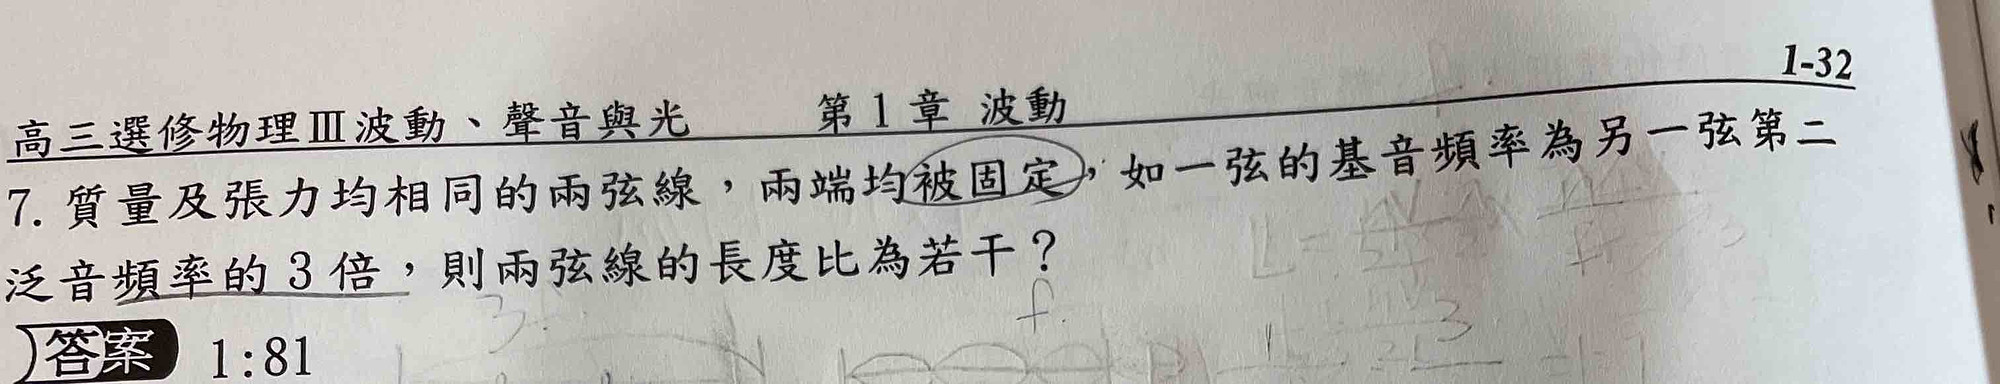 1-32
高三選修物理Ⅲ波動、聲音與光 第1章 波動
7. 質量及張力均相同的兩弦線，兩端均被固定，如一弦的基音頻率為另一弦第二
泛音頻率的3倍，則兩弦線的長度比為若干？
答案 1:81
3
f.